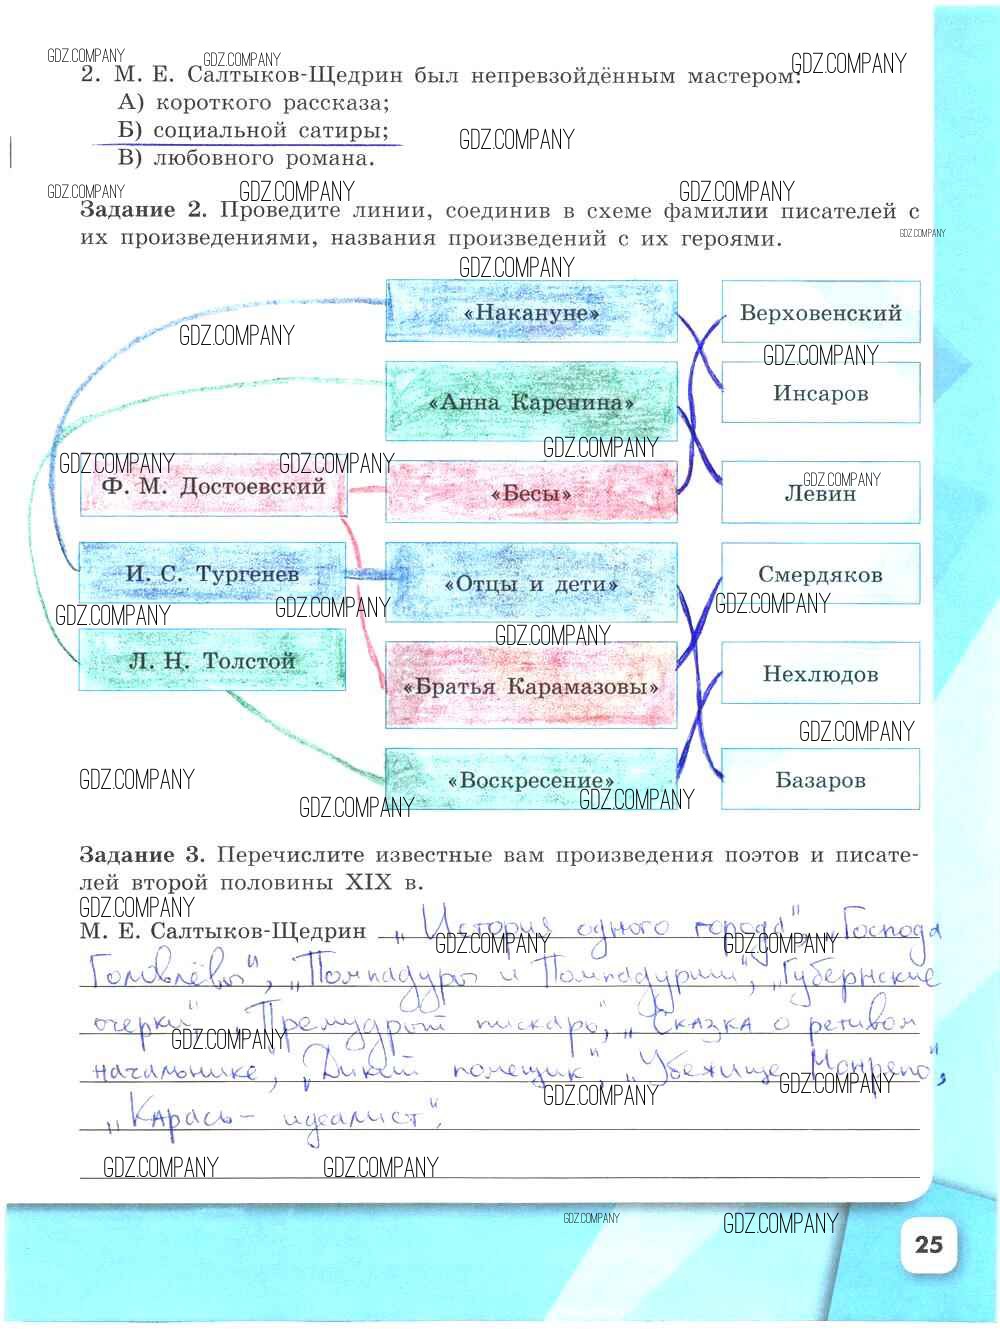 GDZ.COMPANY GDZ.COMPANY GDZ.COMPANY
2. М. Е. Салтыков-Щедрин был непревзойдённым мастером:
А) короткого рассказа;
Б) социальной сатиры;
GDZ.COMPANY
В) любовного романа.
GDZ.COMPANY GDZ.COMPANY GDZ.COMPANY
Задание 2. Проведите линии, соединив в схеме фамилии писателей с
GDZ.COMPANY
их произведениями, названия произведений с их героями.
GDZ.COMPANY
«Накануне» Верховенский
GDZ.COMPANY
GDZ.COMPANY
«Анна Каренина» Инсаров
GDZ.COMPANY
GDZ.COMPANY GDZ.COMPANY
GDZ.COMPANY
Ф. М. Достоевский «Бесы» Левин
И. С. Тургенев «Отцы и дети» Смердяков
GDZ.COMPANY GDZ.COMPANY GDZ.COMPANY
GDZ.COMPANY
Л. Н. Толстой «Братья Карамазовы» Нехлюдов
GDZ.COMPANY
«Воскресение» Базаров
GDZ.COMPANY
GDZ.COMPANY GDZ.COMPANY
Задание 3. Перечислите известные вам произведения поэтов и писате-
лей второй половины XIX в.
GDZ.COMPANY
М. Е. Салтыков-Щедрин „История одного города", „Господа
GDZ.COMPANY GDZ.COMPANY
Головлёвы", „Помпадуры и Помпадурши", „Губернские
очерки", „Премудрый пискарь", „Сказка о ретивом
GDZ.COMPANY
начальнике, „Дикий помещик", „Убежище Монрепо",
GDZ.COMPANY GDZ.COMPANY
„Карась-идеалист".
GDZ.COMPANY GDZ.COMPANY
GDZ.COMPANY GDZ.COMPANY
25